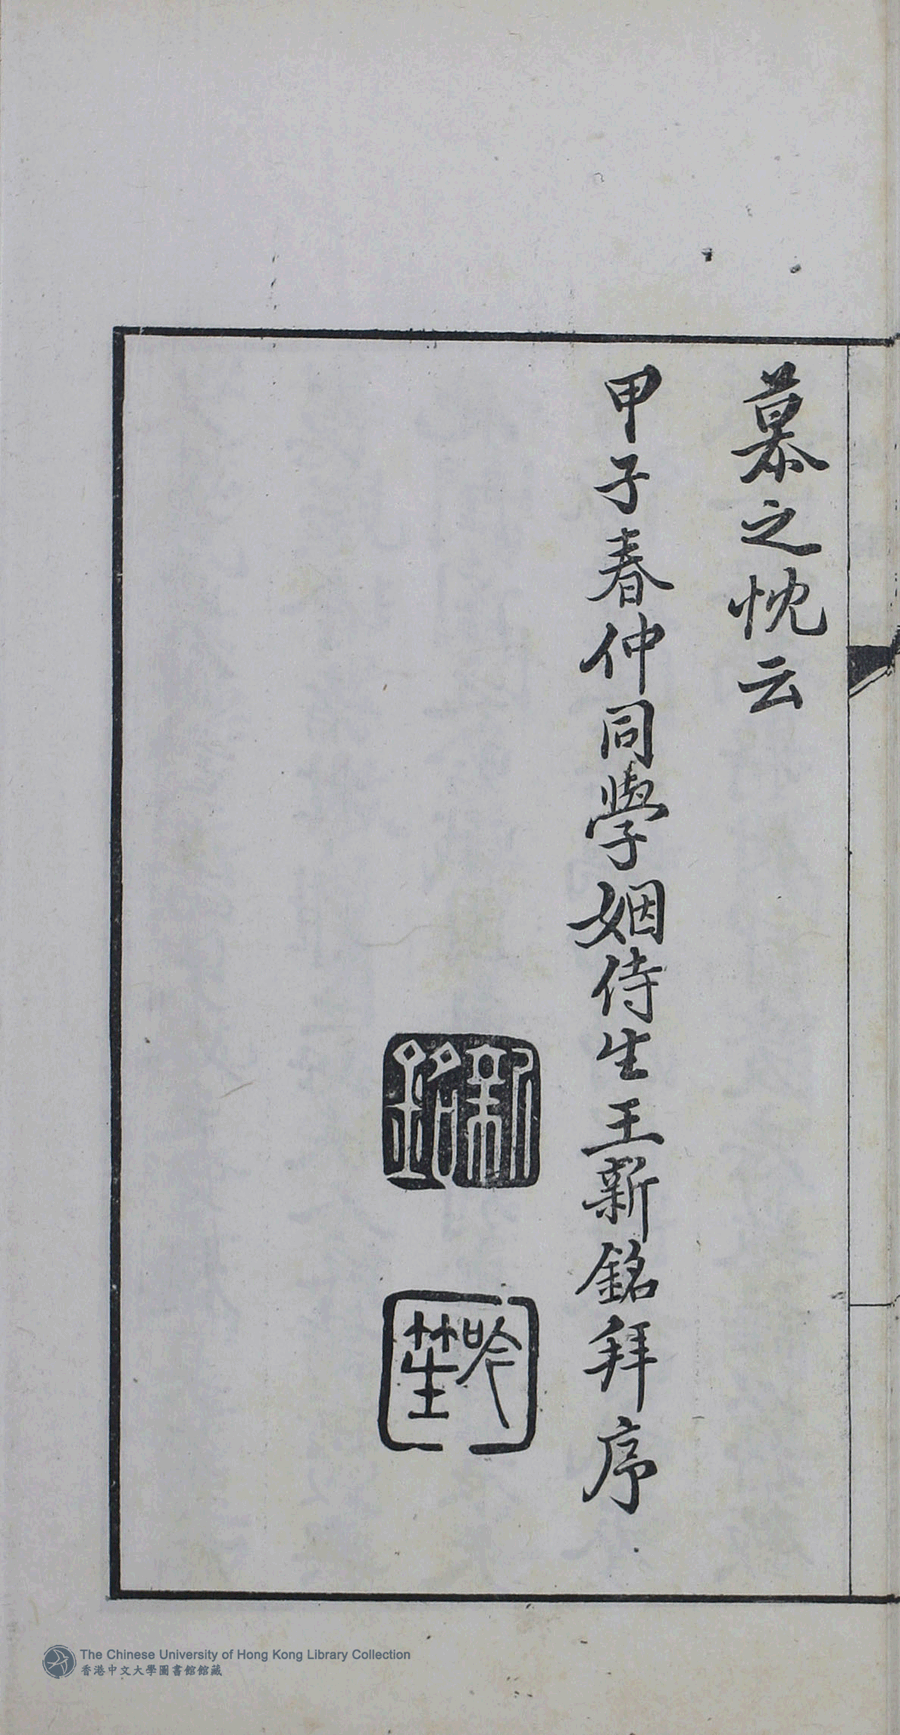 慕之忱云
甲子春仲同學姻侍生王新銘拜序
新銘
吟笙
The Chinese University of Hong Kong Library Collection
香港中文大學圖書館館藏